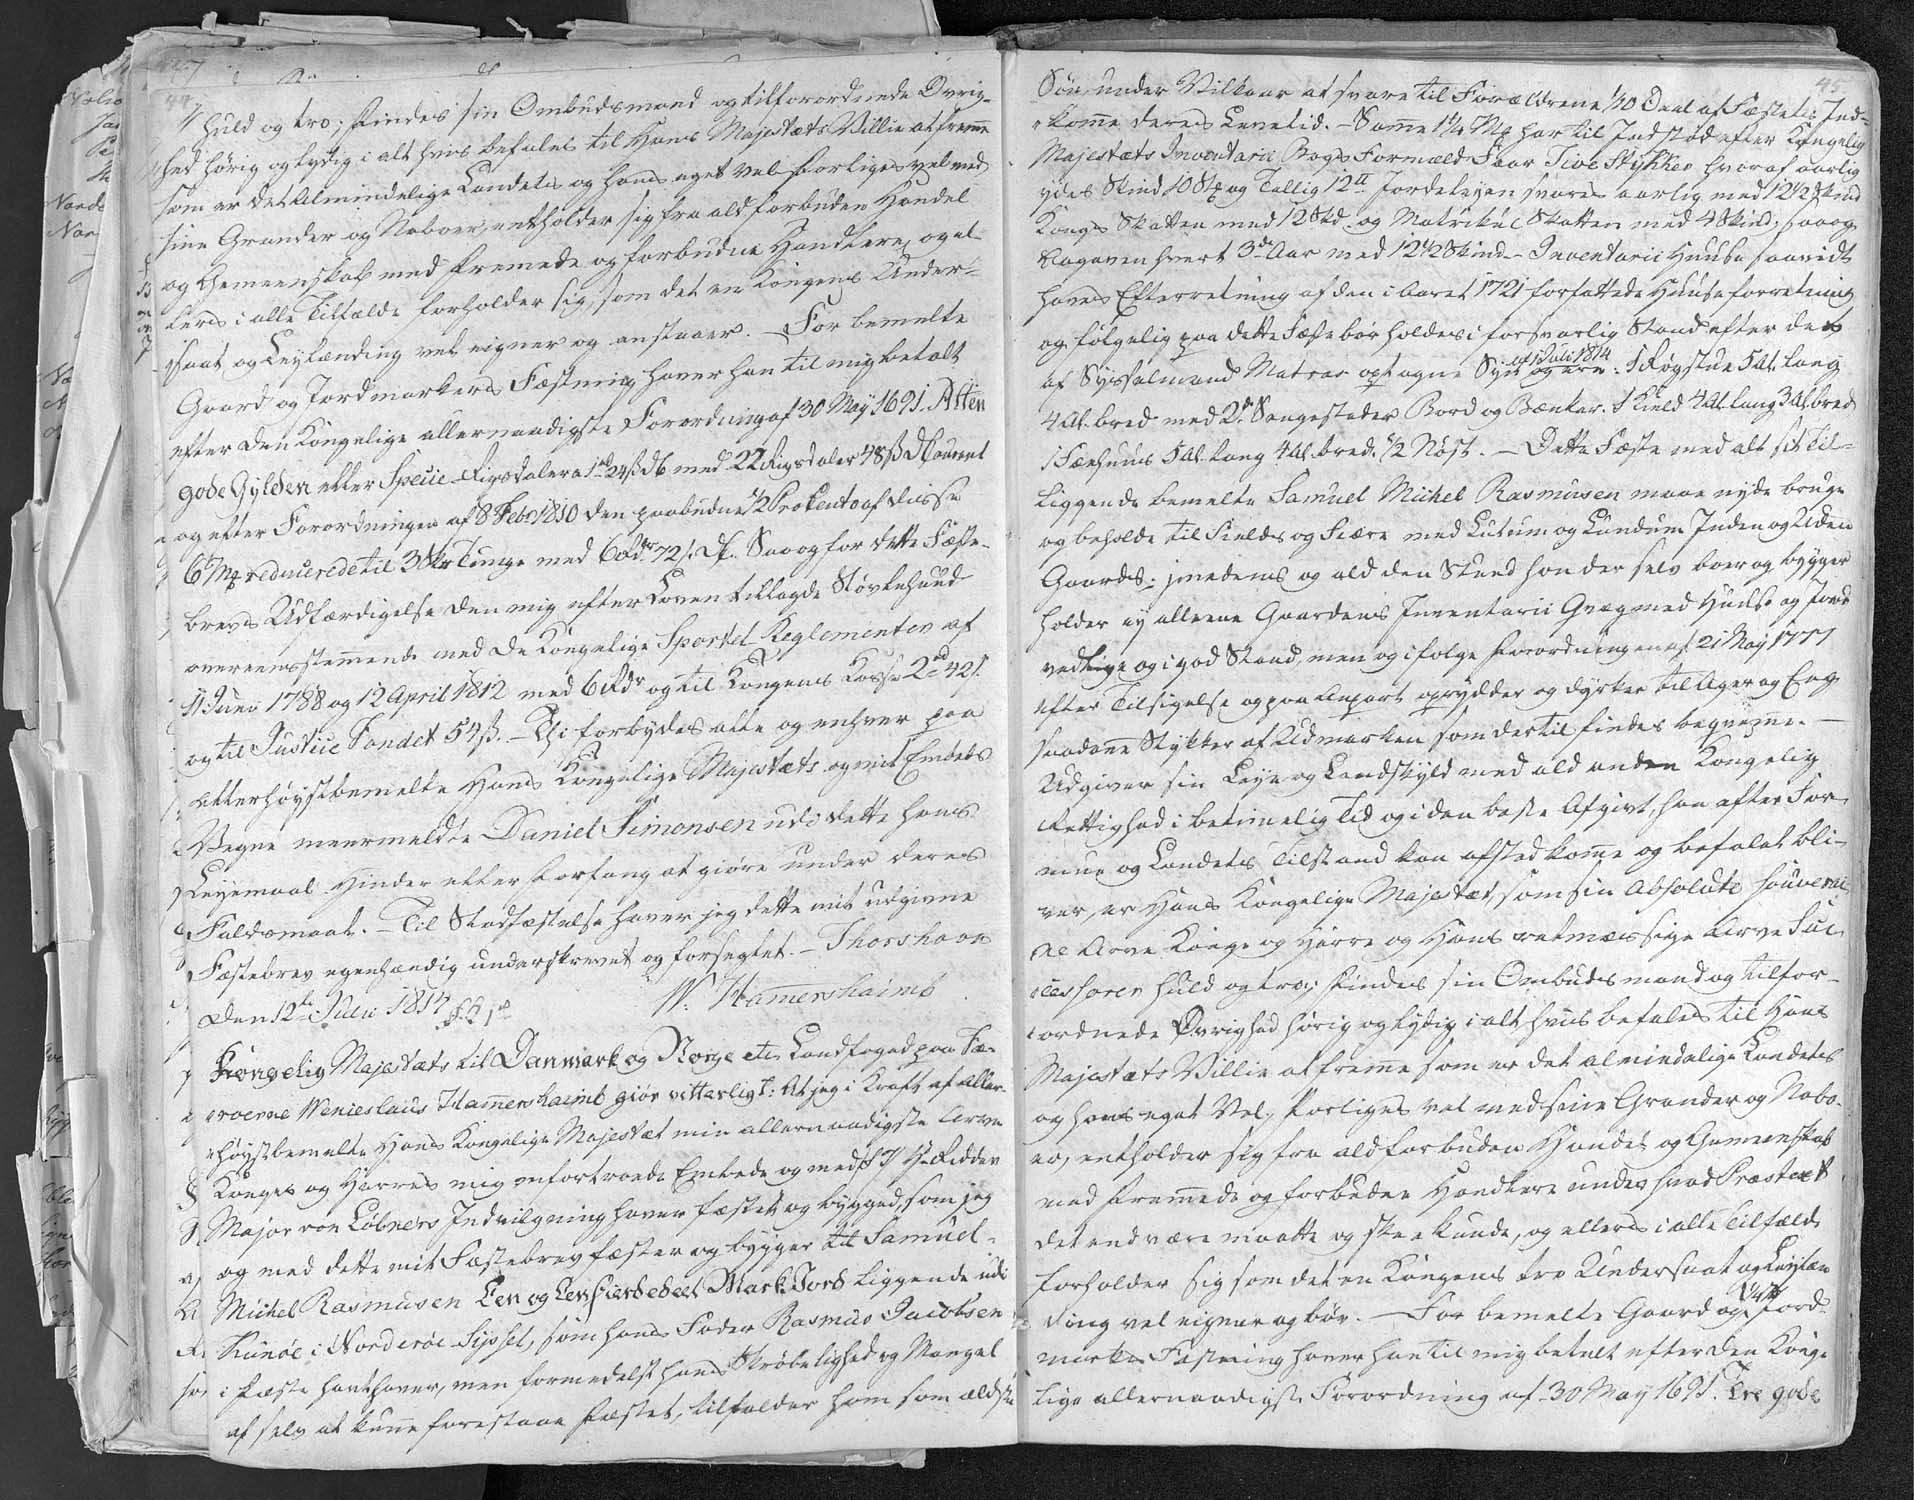 44
huld og tro; kindes sin Ombudsmand og tilforordnede Øvrig-
hed hörig og lydig i alt hvis befales til Hans Majestæts Villie at fremme
som er det Almindelige Landets og hans eget Vel forliges vel med
sine Grander og Naboer, entholder sig fra ald forbuden Handel
og Gemeenskab med fremmede og forbudne Handlere, og el-
lers i alle Tilfælde forholder sig, som det en Kongens Under-
saat og Leylænding vel eigner og anstaaer. – For bemelte
Gaard og Jordmarkers Fæstning haver han til mig betalt
efter den Kongelige allernaadigste Forordning af 30 May 1691. Atten
gode Gylden eller Specie Rigsdalera 1 rd 24 ß D6 med 22 Rigsdaler 48 ß D Courant
og efter Forordningen af 8 Febr 1810 den paabudne ½ Procento af disse
6 Mk reducerede til 3 Tdr Tiunge med 6 Rdr 72 ß. Saa og for dette Fæste-
brevs Udfærdigelse den mig efter Loven tillagde
overeensstemmende med de Kongelige Sportel Reglementer af
11 Juni 1788 og 12 April 1812 med 6 Rdr og til Kongens Kasse 2 rd 42 ß
og til Justice Fondet 54 ß. – Thi forbydes alle og enhver paa
allerhøystbemelte Hans Kongelige Majestæts og mit Embeds
Vegne meermeldte Daniel Simonsen udi dette hans
Leyemaal Hinder eller Forfang at giøre under deres
Faldsmaal. – Til Stadfæstelse haver jeg dette mit udgivne
Fæstebrev egenhændig underskrevet og forseglet. – Thorshavn
den 12te Juli 1817
W. Hammershaimb
Kongelig Majestæts til Danmark og Norge etc Landfoged paa Fæ-
røerne Wenceslaus Hammershaimb giör vitterligt: At jeg i Kraft af aller-
höystbemelte Hans Kongelige Majestæt min allernaadigste Arve
Konges og Herres mig anfortroede Embede og med Hr Ridder
Major von Löbners Indvilgning haver fæstet og bygged, som jeg
og med dette mit Fæstebrev fæster og bygger til Samuel
Michel Rasmusen Een og Een fierdedeel Mark Jord liggende udi
Kunöe i Norderöe Syssel, som hans Fader Rasmus Jacobsen
i Fæste havthaver, men formedelst hans Skröbelighed og Mangel
af selv at kunne forestaae Fæstet, tilfalder ham som ældste
45
Sön, under Vilkaar at svare til Forældrene 1/10 Deel af Fæstets Ind-
komme deres Levetid. – Samme 1¼ Mk har til Indstöd efter Kongelig
Majestæts Inventarii Bogs Formæld Faar Tive Stykker hvoraf aarlig
ydes Skind 10 Stk og Tallig 12 Jordeleyen svares aarlig med 12½ Skind
Konge Skatten med 12 Skd. og Matricul Skatten med 4 Skind; saa og
Aagaven hvert 3die Aar med 12½ Skind – Inventarii Huuse saavidt
haves Efterretning af den i Aaret 1721 forfattede Huuseforretning
og fölgelig paa dette Fæste bör holdes i forsvarlig Stand efter det
af Sysselmand Matras optagne Syn af Juli 1814 : 1 Røgstue 5 Al. lang
4 Al. bred med 2de Sengestæder Bord og Bænker. 1 Kield 4 Al. lang 3 Al. bred
1 Fæehuus 5 Al. lang 4 Al. bred. ½ Nöst. – Dette Fæste med alt sit Til-
liggende bemelte Samuel Michel Rasmusen maae nyde bruge
og beholde til Fields og Fiære med Lutum og Lundum Inden og Uden
Gaards: imedens og ald den Stund han der selv boer og bygger
holder ey alleene Gaardens Inventarii Qvæg med Huuse og Jord
vedlige og i god Stand, men og ifolge Forordningen af 21 May 1777
efter Tilsigelse og paa Anpart oprydder og dyrker til Ager og Eng
saadanne Stykker af Udmarken som dertil findes beqvemme. –
Udgiver sin Leye og Landskyld med ald anden Kongelig
Rettighed i betimelig Tid og i den beste Afgivt, han after For-
mue og Landets Tilstand kan afsted komme og befalet bli-
ver, er Hans Kongelige Majestæt, som sin Absolute souverai-
ne Arve Konge og Herre og Hans retmæssige Arve Suc-
cessorer huld og tro; kindes sin Ombudsmand og tilfor-
ordnede Øvrighed hörig og lydig i alt hvis befales til Hans
Majestæts Villie at fremme som er det almindelige Landets
og hans eget Vel; forliges vel med sine Grander og Nabo-
er, entholder sig fra ald forbuden Handel og Gemeenskab
med fremmede og forbuden Handlere under hvad Prætext
det end være maatte og skee kunde, og ellers i alle Tilfælde
forholder sig som det en Kongens tro Undersaat og Leylæn
ding vel eigner og bör. – For bemelte Gaard og 1¼ Mk Jord-
markes Fæstning haver han til mig betalt efter den Konge
lige allernaadigst Forordning af 30 May 1691. Tre gode